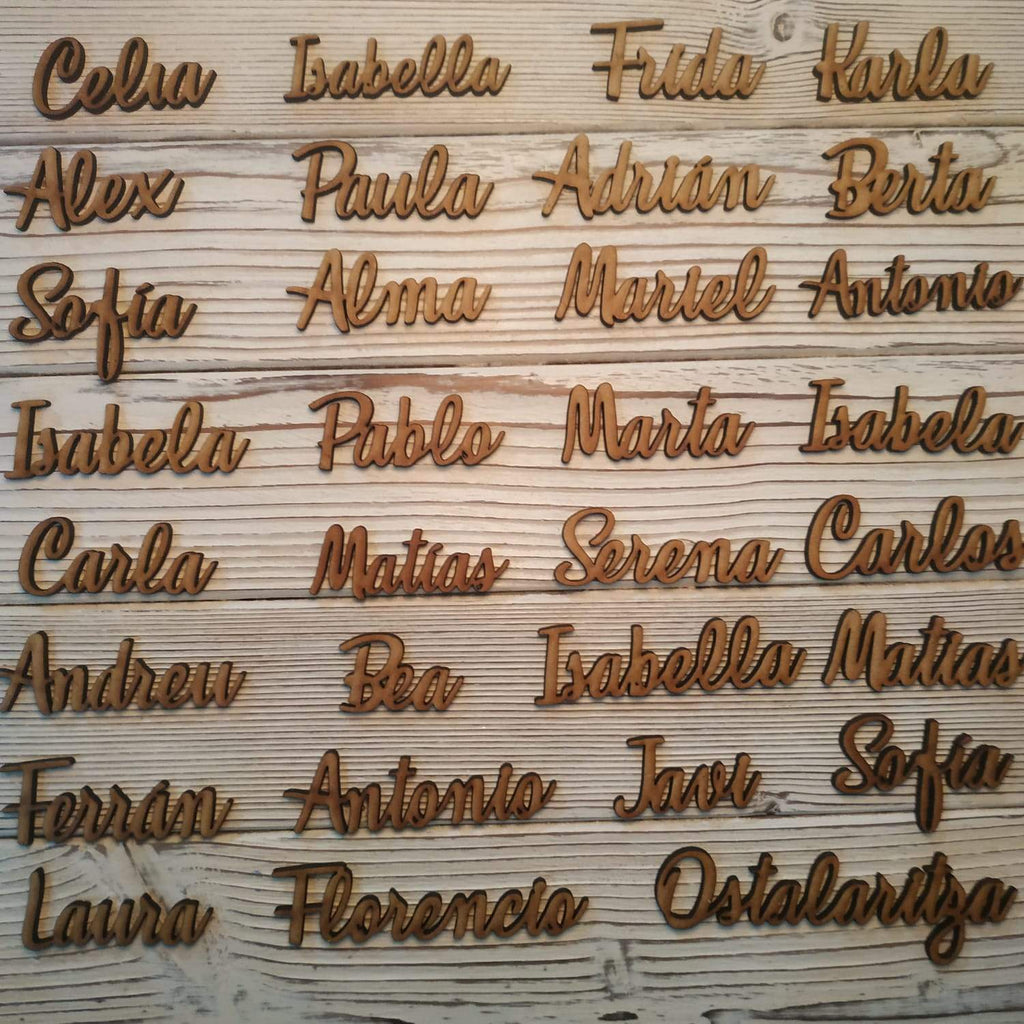 Celia Isabella Frida Karla
Alex Paula Adrián Berta
Sofía Alma Mariel Antonio
Isabela Pablo Marta Isabela
Carla Matías Serena Carlos
Andreu Bea Isabella Matías
Ferrán Antonio Javi Sofía
Laura Florencio Ostalaritza